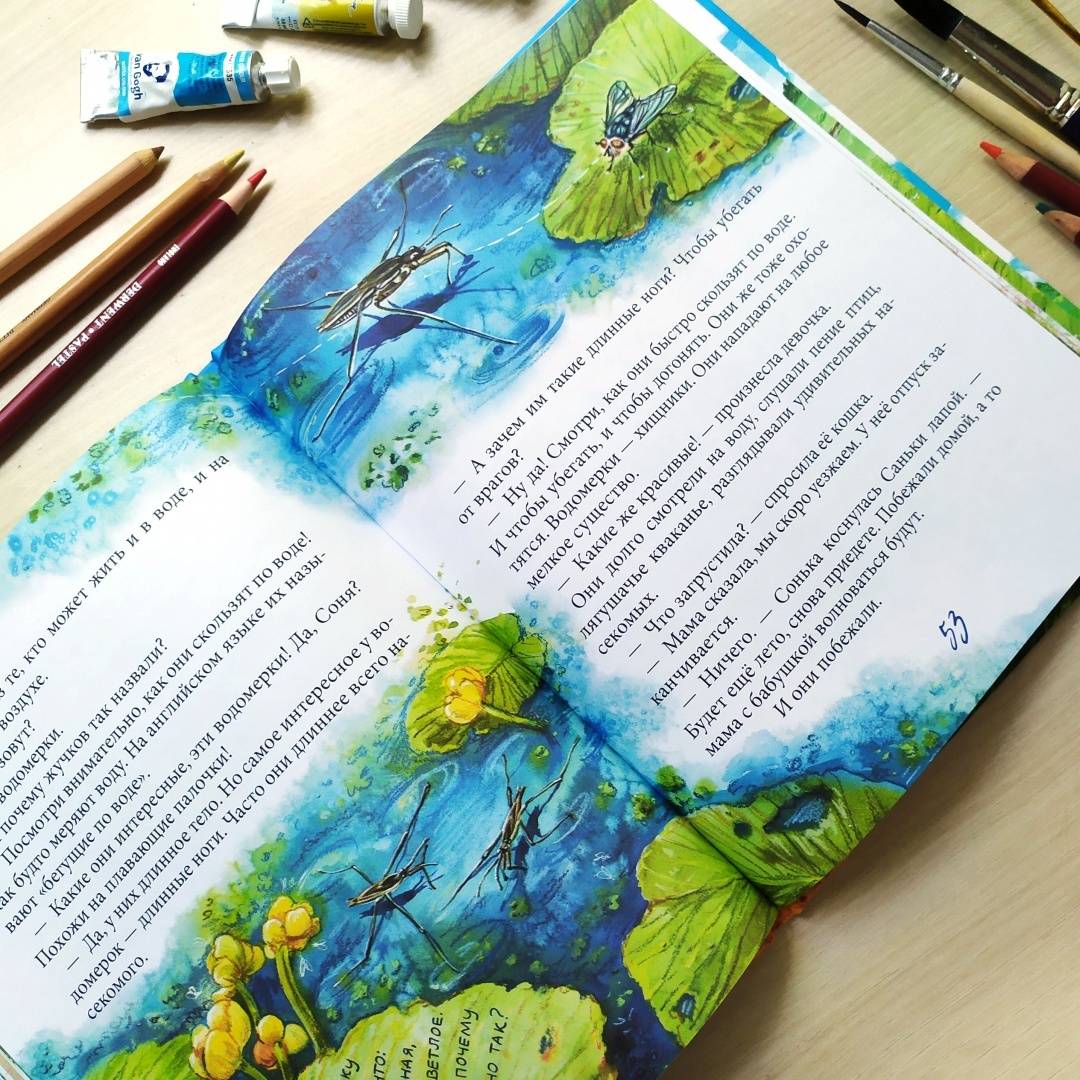 те, кто может жить и в воде, и на
воздухе.
зовут?
водомерки.
почему жучков так назвали?
Посмотри внимательно, как они скользят по воде!
ак будто меряют воду. На английском языке их назы-
вают «бегущие по воде».
— Какие они интересные, эти водомерки! Да, Соня?
Похожи на плавающие палочки!
— Да, у них длинное тело. Но самое интересное у во-
домерок — длинные ноги. Часто они длиннее всего на-
секомого.
НАЯ,
ВЕТЛОЕ.
ПОЧЕМУ
НО ТАК?
— А зачем им такие длинные ноги? Чтобы убегать
от врагов?
— Ну да! Смотри, как они быстро скользят по воде.
И чтобы убегать, и чтобы догонять. Они же тоже охо-
тятся. Водомерки — хищники. Они нападают на любое
мелкое существо.
— Какие же красивые! — произнесла девочка
Они долго смотрели на воду, слушали пение птиц,
лягушачье кваканье, разглядывали удивительных на-
секомых.
— Что загрустила? — спросила её кошка.
— Мама сказала, мы скоро уезжаем. У неё отпуск за-
канчивается.
— Ничего. — Сонька коснулась Саньки лапой. —
Будет ещё лето, снова приедете. Побежали домой, а то
мама с бабушкой волноваться будут.
И они побежали.
53
van Gogh
535
DERWENT • PASTEL